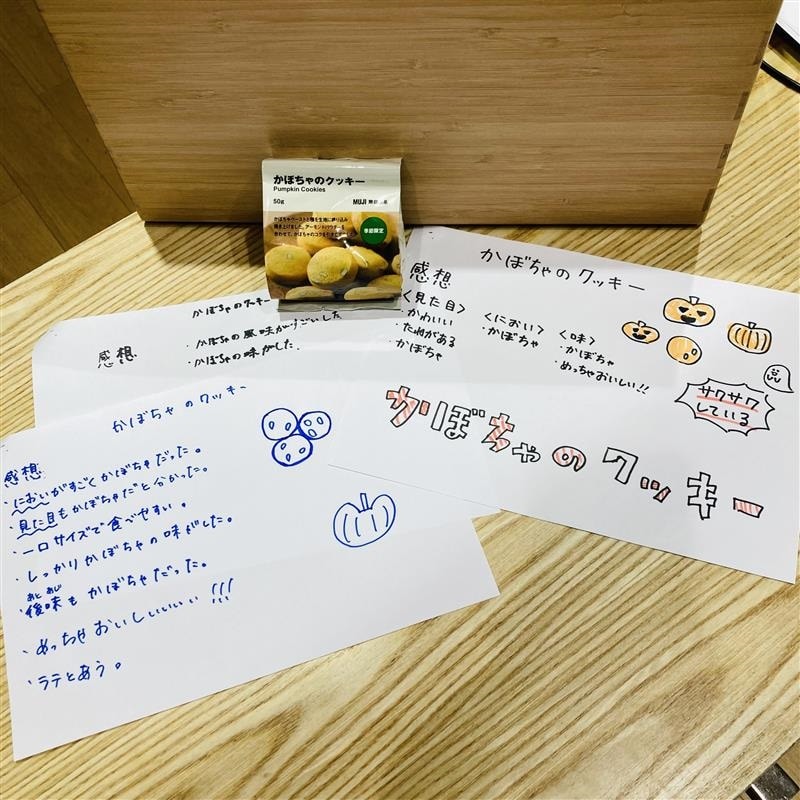 かぼちゃのクッキー
Pumpkin Cookies
50g
MUJI 無印良品
かぼちゃペーストと種を生地に練り込み
焼き上げました。アーモンドパウダーを
合わせて、かぼちゃのコクを引き立て
季節限定
かぼちゃのクッキー
感想
・かぼちゃの風味がすごいした
・かぼちゃの味がした
かぼちゃのクッキー
感想
<見た目>
・かわいい
・たねがある
・かぼちゃ
<におい>
・かぼちゃ
<味>
・かぼちゃ
・めっちゃおいしい!!
サクサク
している
かぼちゃのクッキー
かぼちゃのクッキー
感想
・においがすごくかぼちゃだった。
・見た目もかぼちゃだと分かった。
・一口サイズで食べやすい。
・しっかりかぼちゃの味がした。
あと あじ
・後味もかぼちゃだった。
・めっちゃおいしいいいい!!!
・ラテとあう。